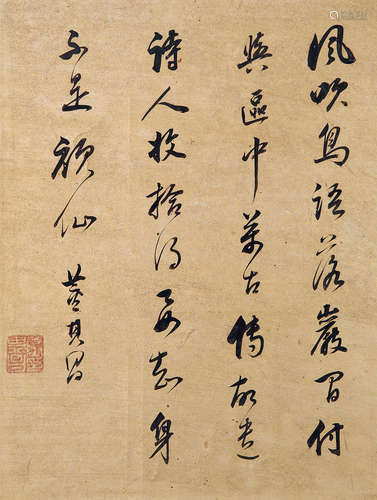 風吹鳥語落巖間付
與區中萬古傳故遣
詩人收拾得不知身
不是癡仙 董其昌